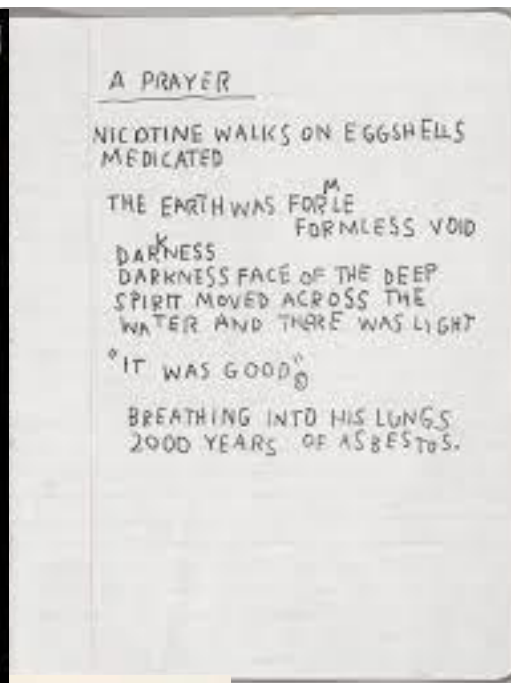 A PRAYER
NICOTINE WALKS ON EGGSHELLS
MEDICATED
THE EARTH WAS FORMLE
FORMLESS VOID
DARKNESS
DARKNESS FACE OF THE DEEP
SPIRIT MOVED ACROSS THE
WATER AND THERE WAS LIGHT
"IT WAS GOOD"
BREATHING INTO HIS LUNGS
2000 YEARS OF ASBESTOS.